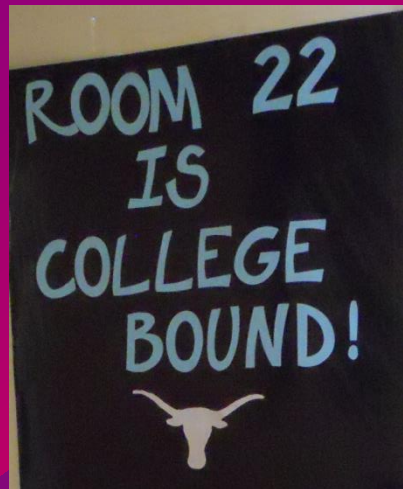 ROOM 22
IS
COLLEGE
BOUND!